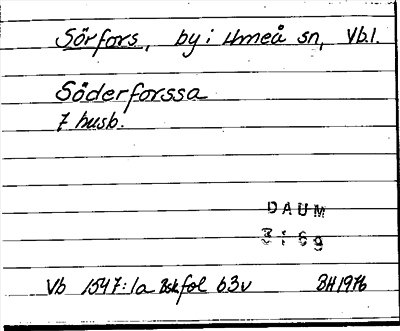 Sörfors, by i Umeå sn, Vb.l.
Söderforssa
7 husb.
DAUM
3169
Vb 1547:1a Bskfol 63v BH1976